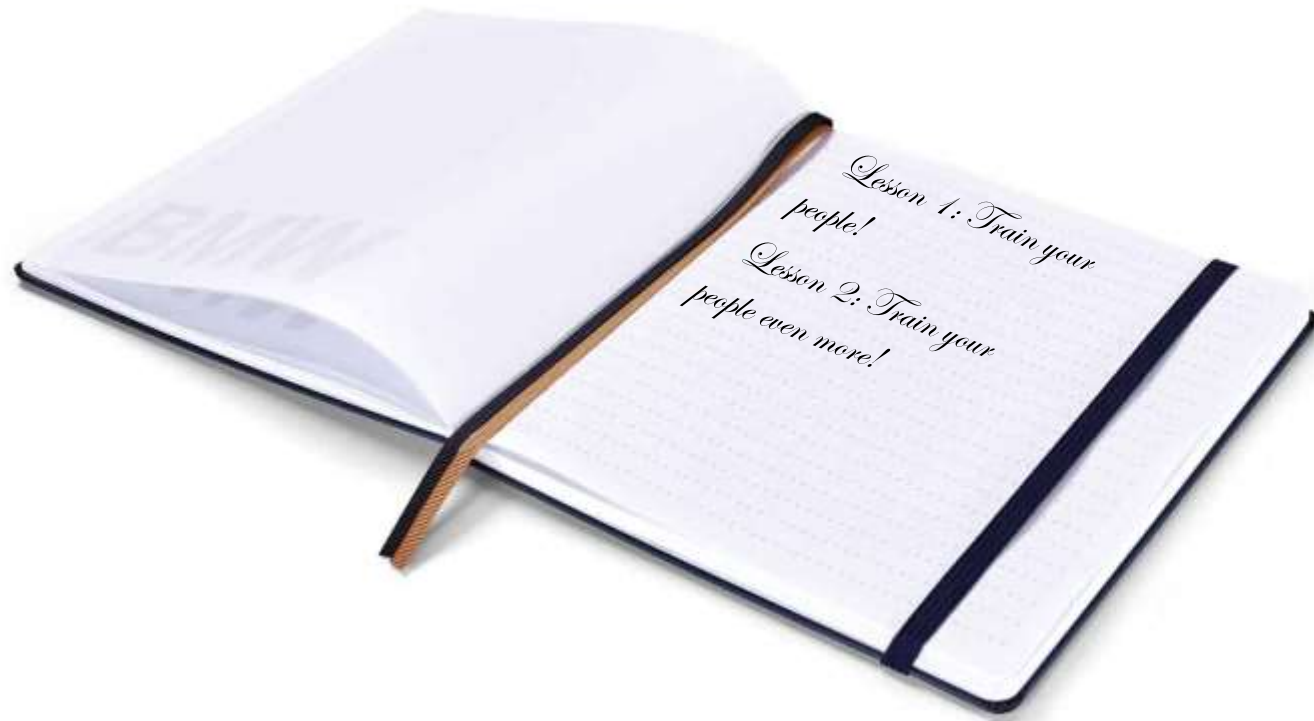 Lesson 1: Train your
people!
Lesson 2: Train your
people even more!